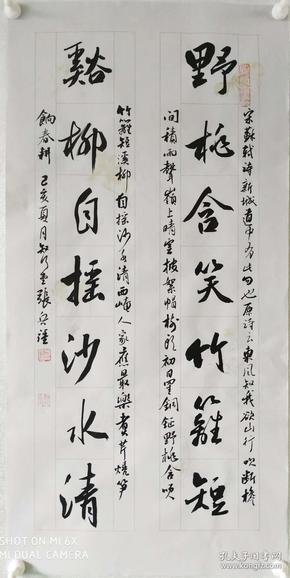 野桃含笑竹籬短
宋蘇軾詩新城道中有此句也原詩云東風知我欲山行吹斷檐
間積雨聲嶺上晴雲披絮帽樹頭初日掛銅鉦野桃含笑
竹籬短溪柳自搖沙水清西崦人家應最樂煮芹燒笋
谿柳自摇沙水清
餉春耕 己亥夏月
SHOT ON MI 6X
MI DUAL CAMERA
孔夫子旧书网